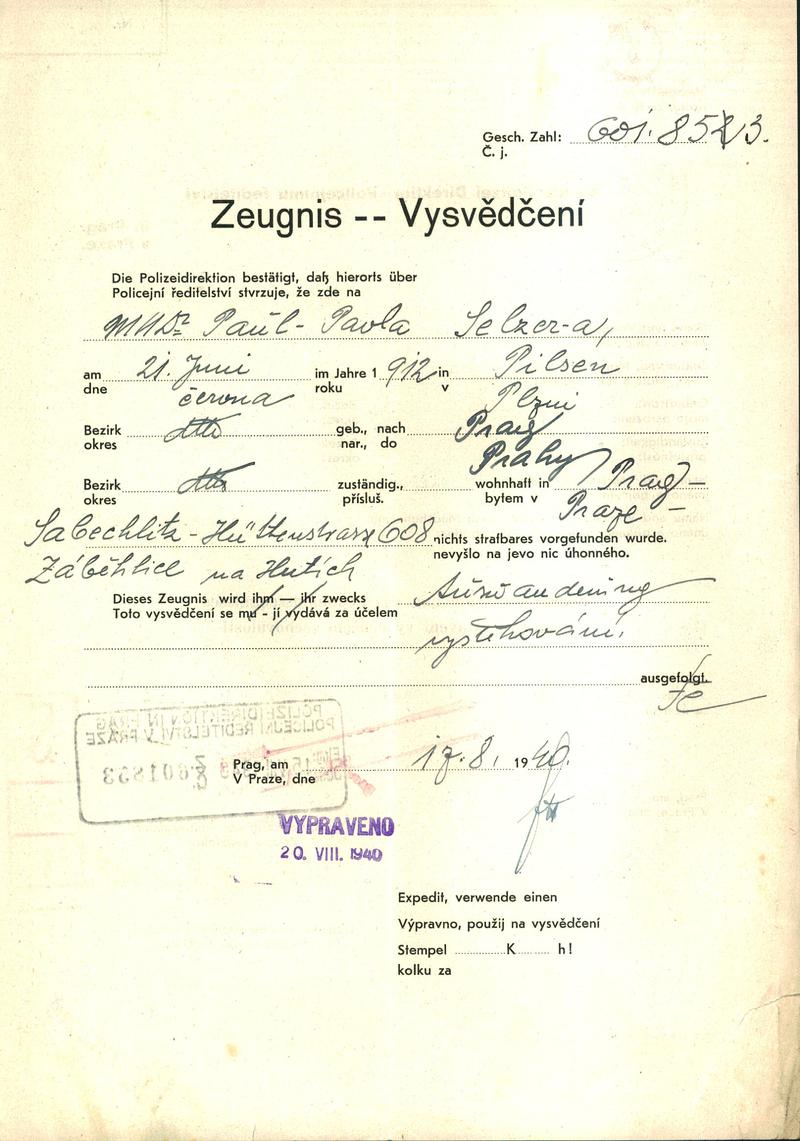 Gesch. Zahl: 601.8523.
Č. j.
Zeugnis -- Vysvědčení
Die Polizeidirektion bestätigt, daß hierorts über
Policejní ředitelství stvrzuje, že zde na
MUDr Paul- Pavla Selzer-a,
am 21. Juni im Jahre 1912 in Pilsen
dne června roku v Plzni
Bezirk dtto geb., nach Prag
okres nar., do Prahy
Bezirk dtto zuständig., wohnhaft in Prag-
okres přísluš. bytem v Praze-
Sabechlitz-Hüttenstrasse 608 nichts strafbares vorgefunden wurde.
nevyšlo na jevo nic úhonného.
Záběhlice na Hutích
Dieses Zeugnis wird ihm — ihr zwecks Auswanderung
Toto vysvědčení se mu - jí vydává za účelem
vystěhování.
ausgefolgt.
POLIZEIDIREKTION IN PRAG
POLICEJNÍ ŘEDITELSTVÍ V PRAZE
601853
Prag, am 17.8. 1940.
V Praze, dne
VYPRAVENO
20. VIII. 1940
Expedit, verwende einen
Výpravno, použij na vysvědčení
Stempel ............K........ h!
kolku za